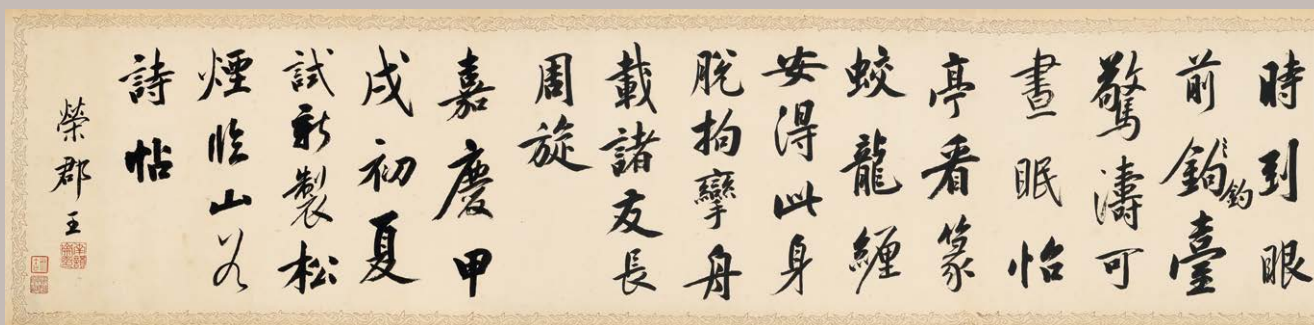 時到眼
前鈎臺
釣
驚濤可
晝眠怡
亭看篆
蛟龍纏
安得此身
脫拘攣舟
載諸友長
周旋
嘉慶甲
戌初夏
試新製松
煙臨山谷
詩帖
榮郡王